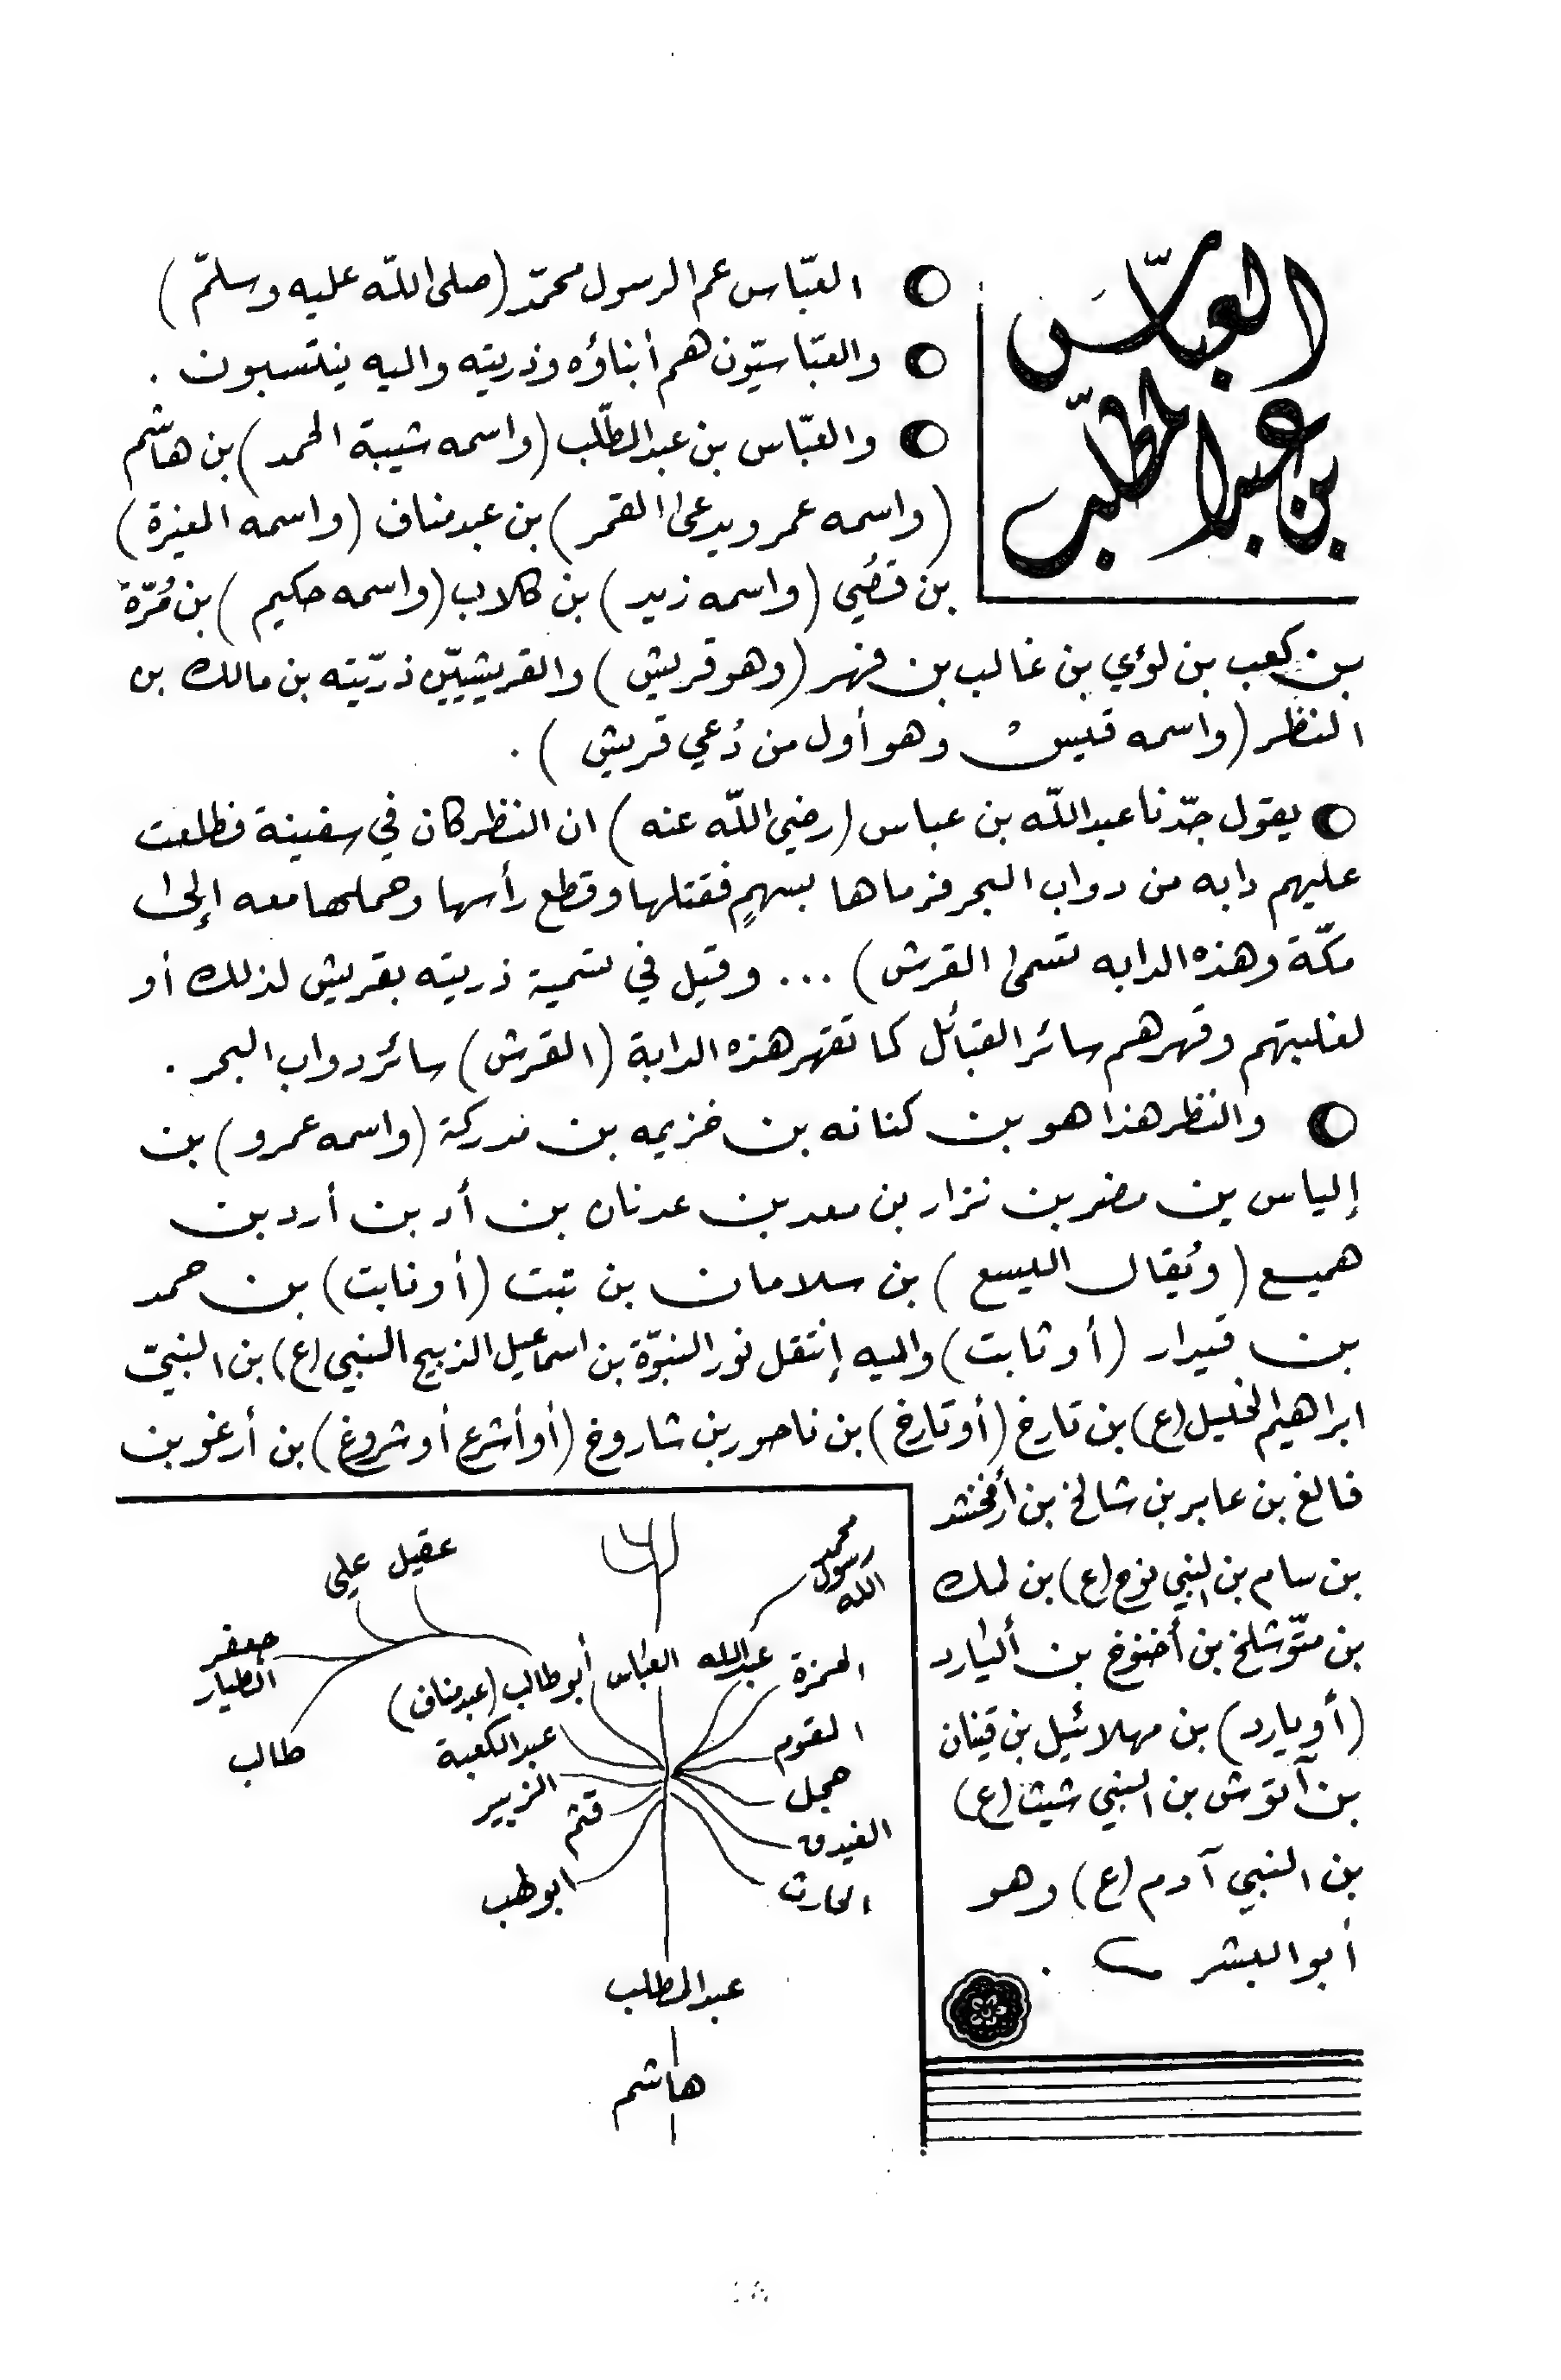 العبّاس
بن عبد المطّلب
العبّاس عم الرسول محمّد (صلى اللّه عليه وسلمّ)
والعبّاسيّون هم أبناؤه وذريته واليه ينتسبون .
والعبّاس بن عبد المطّلب (واسمه شيبة الحمد) بن هاشم
(واسمه عمر ويدعى القمر) بن عبد مناف (واسمه المغيرة)
بن قصُي (واسمه زيد) بن كلاب (واسمه حكيم) بن مُرّة
بن كعب بن لؤي بن غالب بن فهر (وهو قريش) والقريشييّن ذرّيته بن مالك بن
النظر (واسمه قيس وهو أول من دُعي قريش) .
يقول جدّنا عبد اللّه بن عباس (رضي اللّه عنه) ان النظر كان في سفينة فطلعت
عليهم دابه من دواب البحر فرماها بسهمٍ فقتلها وقطع رأسها وحملها معه إلى
مكّة وهذه الدابه تسمى القرش) ... وقيل في تسمية ذريته بقريش لذلك أو
لغلبتهم وقهرهم سائر القبائل كما تقهر هذه الدابة (القرش) سائر دواب البحر .
والنظر هذا هو بن كنانه بن خزيمه بن مدركة (واسمه عمرو) بن
إلياس بن مضر بن نزار بن معد بن عدنان بن أد بن أرد بن
هميسع (ويُقال اليسع) بن سلامان بن نبت (أو نابت) بن حمد
بن قيدار (أو ثابت) واليه إنتقل نور النبوّة بن اسماعيل الذبيح النبي (ع) بن النبيّ
ابراهيم الخليل (ع) بن تارخ (أو تارخ) بن ناحور بن شاروخ (أو أشرع أو شروغ) بن أرغو بن
فالغ بن عابر بن شالخ بن أرفخشد
بن سام بن النبي نوح (ع) بن لمك
بن متّوشلخ بن أخنوخ بن أليارد
(أو يارد) بن مهلائيل بن قينان
بن آنوش بن النبي شيث (ع)
بن النبي آدم (ع) وهو
أبو البشر .
محمد
رسول
الله
عقيل
علي
جعفر
الطيار
طالب
الحمزة
عبد الله
العباس
أبو طالب (عبد مناف)
المقوم
عبد الكعبة
حجل
الزبير
الغيدق
قثم
الحارث
ابو لهب
عبد المطلب
هاشم